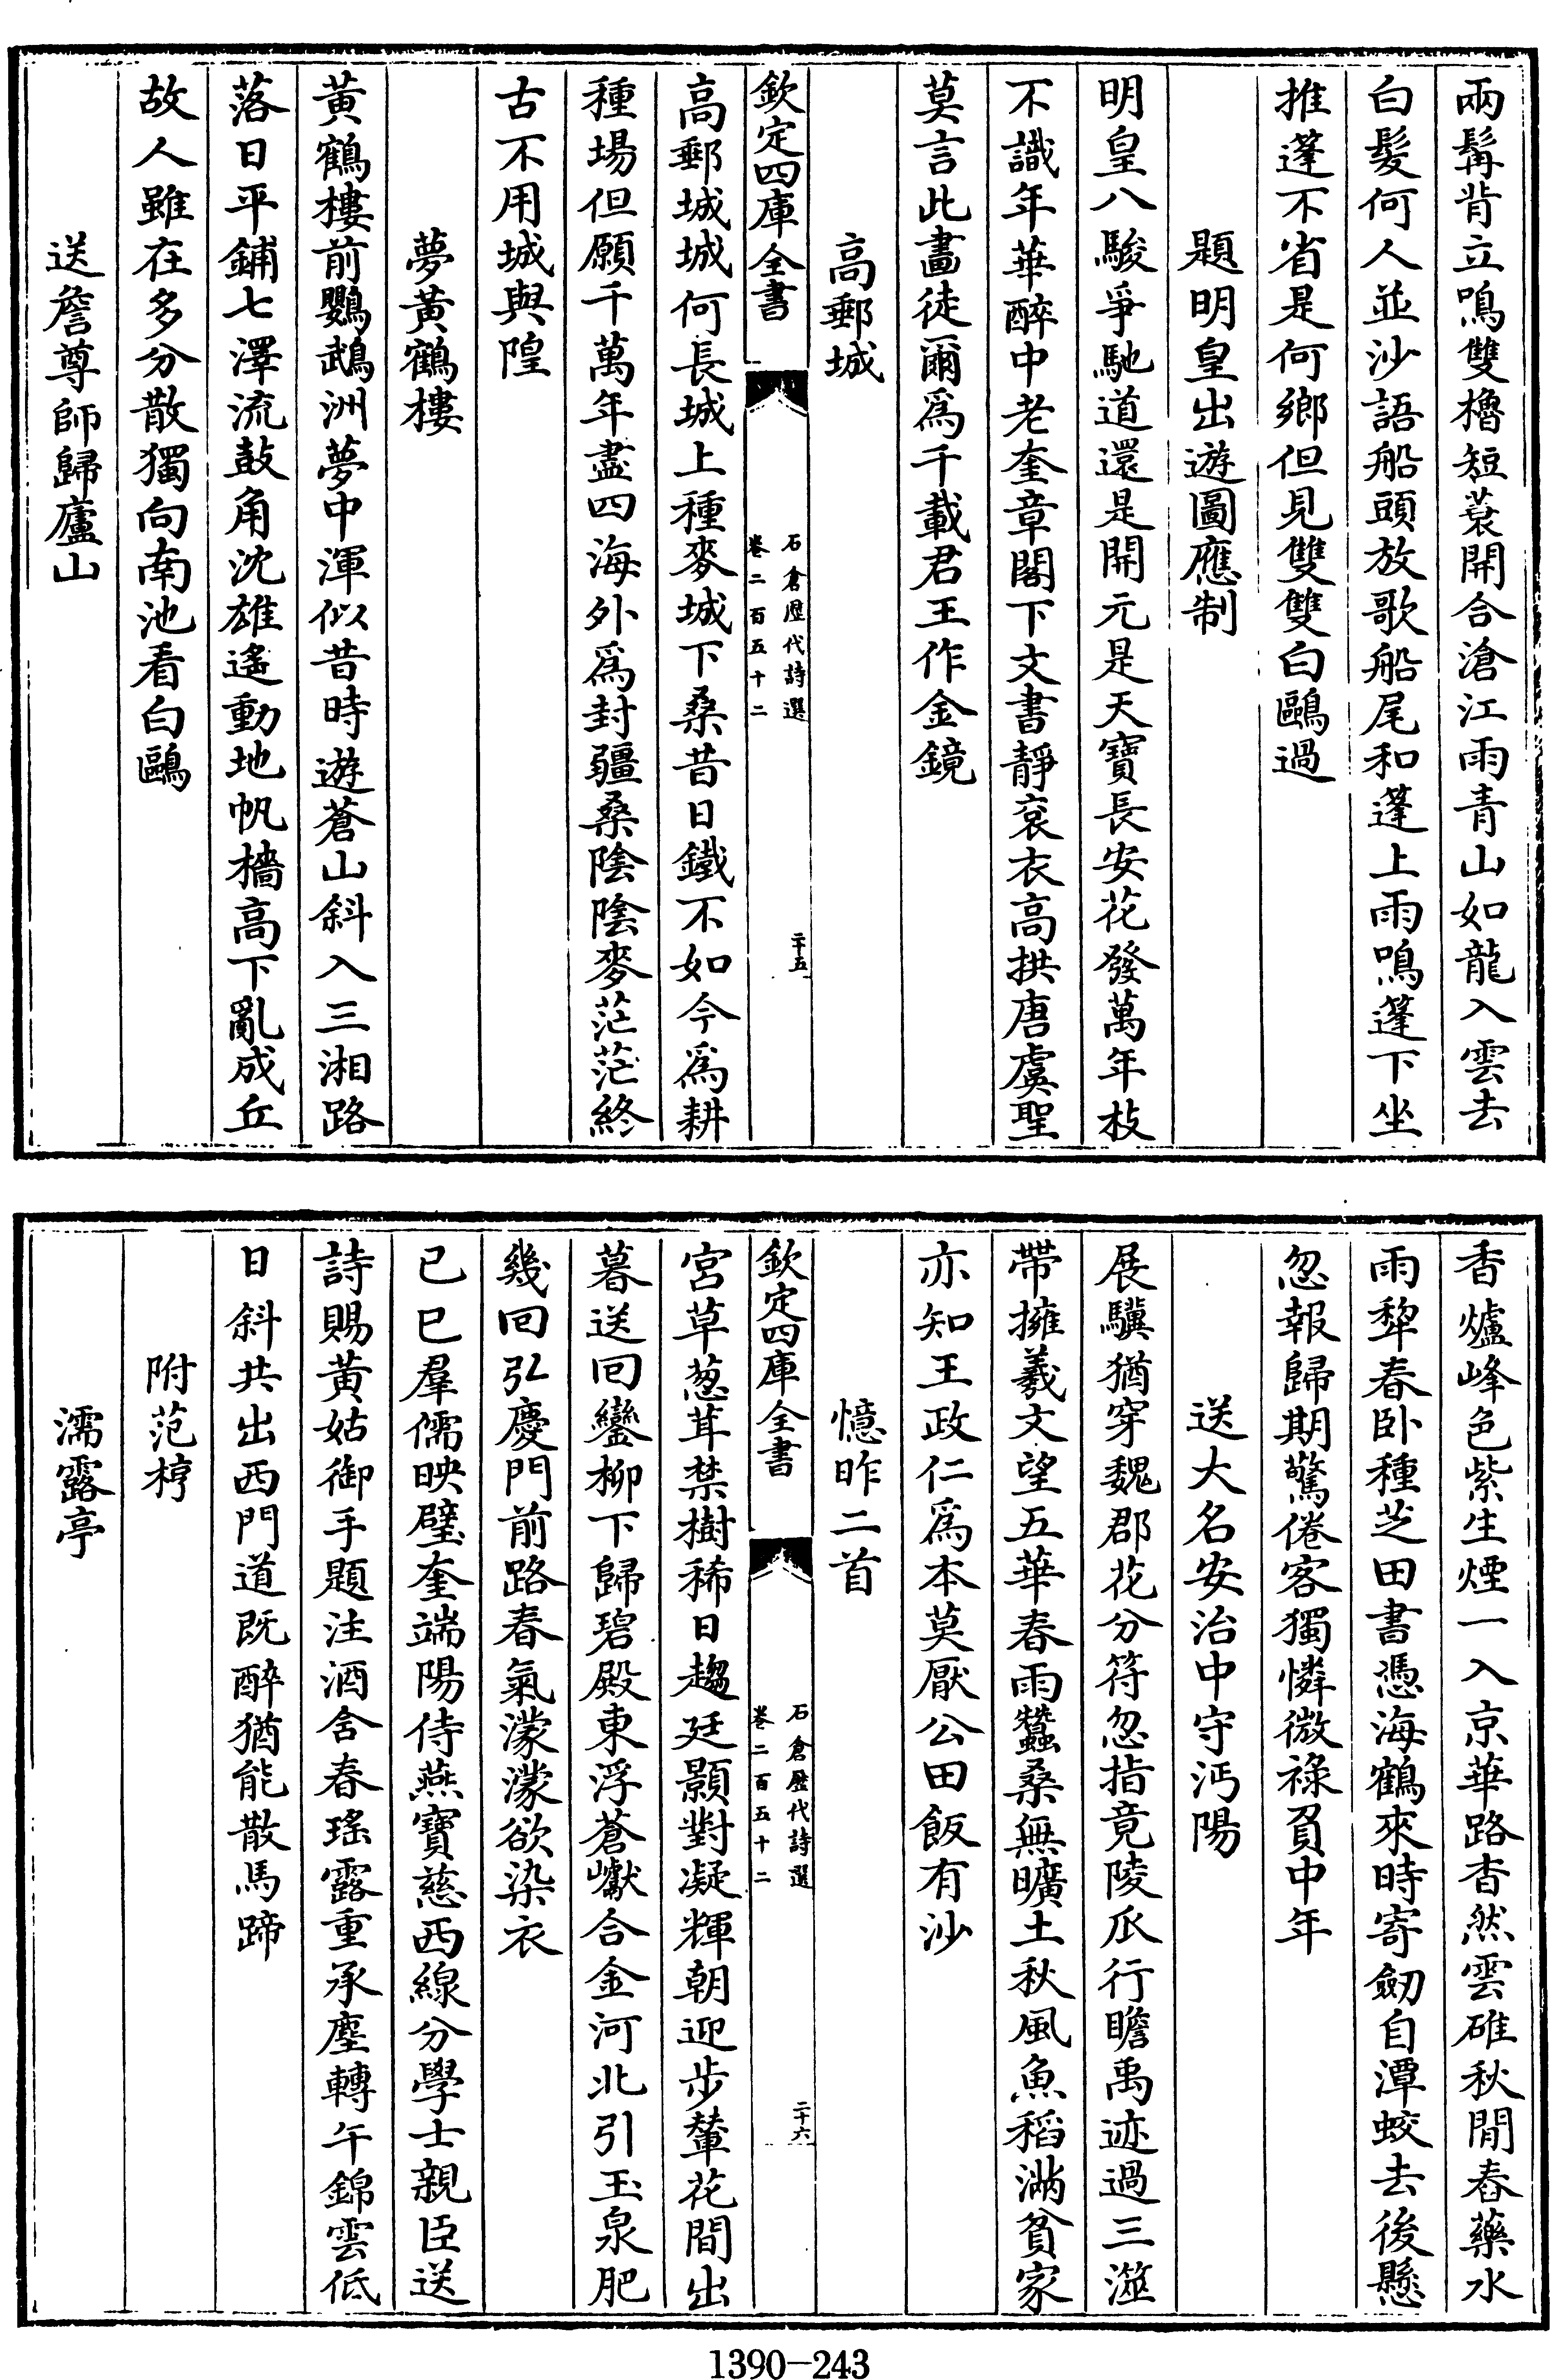 兩髯背立鳴雙櫓短蓑開合滄江雨青山如龍入雲去
白髮何人並沙語船頭放歌船尾和篷上雨鳴篷下坐
推篷不省是何鄉但見雙雙白鷗過
題明皇出遊圖應制
明皇八駿爭馳道還是開元是天寶長安花發萬年枝
不識年華醉中老奎章閣下文書靜袞衣高拱唐虞聖
莫言此畫徒爾爲千載君王作金鏡
高郵城
欽定四庫全書
石倉歷代詩選
卷二百五十二
二十五
高郵城城何長城上種麥城下桑昔日鐵不如今爲耕
種場但願千萬年盡四海外爲封疆桑陰陰麥茫茫終
古不用城與隍
夢黃鶴樓
黃鶴樓前鸚鵡洲夢中渾似昔時遊蒼山斜入三湘路
落日平鋪七澤流鼓角沈雄遙動地帆檣高下亂成丘
故人雖在多分散獨向南池看白鷗
送詹尊師歸廬山
香爐峰色紫生煙一入京華路杳然雲碓秋閒舂藥水
雨犂春臥種芝田書憑海鶴來時寄劒自潭蛟去後懸
忽報歸期驚倦客獨憐微祿負中年
送大名安治中守沔陽
展驥猶穿魏郡花分符忽指竟陵瓜行瞻禹迹過三澨
帶擁羲文望五華春雨蠶桑無曠土秋風魚稻滿貧家
亦知王政仁爲本莫厭公田飯有沙
憶昨二首
欽定四庫全書
石倉歷代詩選
卷二百五十二
二十六
宮草葱茸禁樹稀日趨廷顥對凝輝朝迎步輦花間出
暮送回鑾柳下歸碧殿東浮蒼巘合金河北引玉泉肥
幾回弘慶門前路春氣濛濛欲染衣
已巳羣儒映璧奎端陽侍燕寶慈西線分學士親臣送
詩賜黃姑御手題注酒含春瑤露重承塵轉午錦雲低
日斜共出西門道既醉猶能散馬蹄
附范梈
濡露亭
1390-243